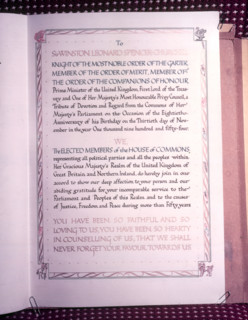 To
SIR WINSTON LEONARD SPENCER-CHURCHILL
KNIGHT OF THE MOST NOBLE ORDER OF THE GARTER,
MEMBER OF THE ORDER OF MERIT, MEMBER OF
THE ORDER OF THE COMPANIONS OF HONOUR,
Prime Minister of the United Kingdom, First Lord of the Treas-
ury and One of Her Majesty's Most Honourable Privy Council, a
Tribute of Devotion and Regard from the Commons of Her
Majesty's Parliament on the Occasion of the Eightieth
Anniversary of his Birthday on the Thirtieth day of Nov-
ember in the year One thousand nine hundred and fifty-four
WE,
The ELECTED MEMBERS of the HOUSE of COMMONS,
representing all political parties and all the peoples within
Her Gracious Majesty's Realm of the United Kingdom of
Great Britain and Northern Ireland, do hereby join in one
accord to show our deep affection to your person and our
abiding gratitude for your incomparable service to the
Parliament and Peoples of this Realm and to the causes
of Justice, Freedom and Peace during more than Fifty years
YOU HAVE BEEN SO FAITHFUL AND SO
LOVING TO US, YOU HAVE BEEN SO HEARTY
IN COUNSELLING OF US, THAT WE SHALL
NEVER FORGET YOUR FAVOUR TOWARDS US.